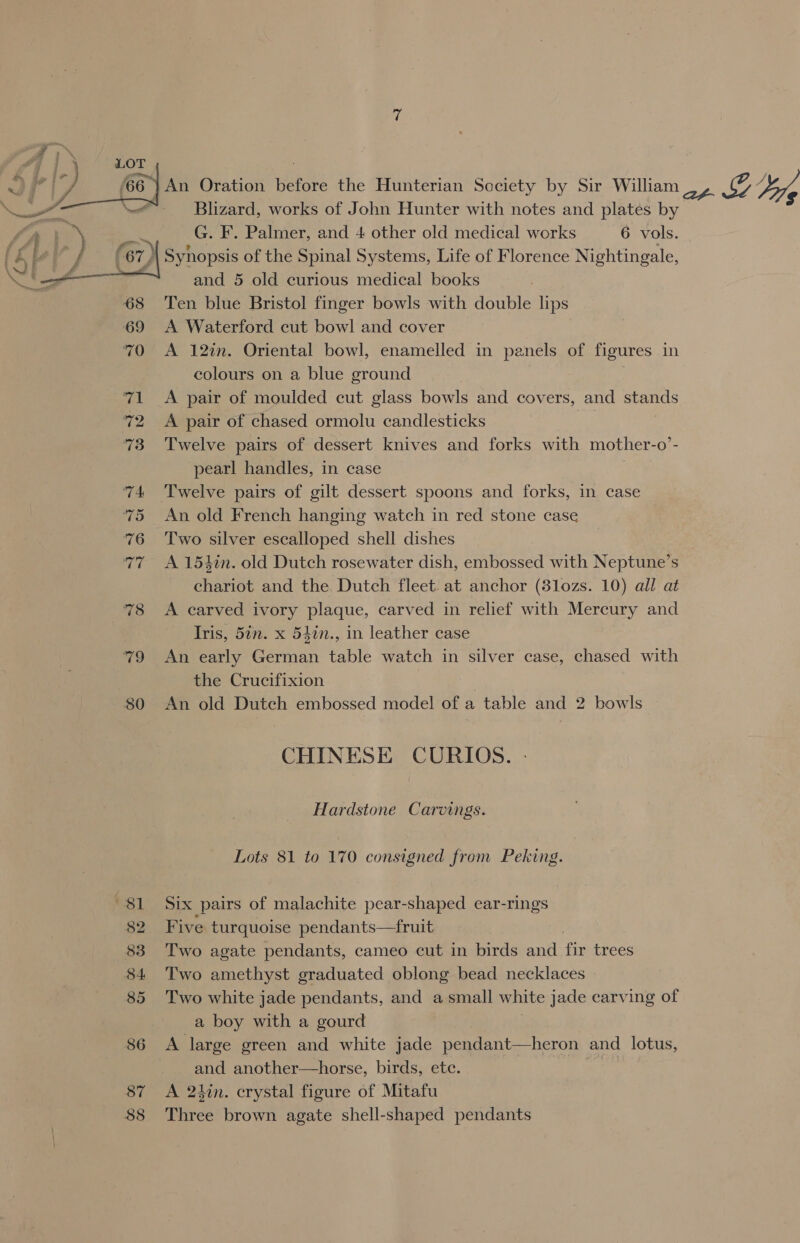 7
LOT
66 An Oration before the Hunterian Society by Sir William
Blizard, works of John Hunter with notes and plates by
G. F. Palmer, and 4 other old medical works 6 vols.
67 Synopsis of the Spinal Systems, Life of Florence Nightingale,
and 5 old curious medical books
68 Ten blue Bristol finger bowls with double lips
69 A Waterford cut bowl and cover
70 A 12in. Oriental bowl, enamelled in panels of figures in
colours on a blue ground
71 A pair of moulded cut glass bowls and covers, and stands
72 A pair of chased ormolu candlesticks
73 Twelve pairs of dessert knives and forks with mother-o'-
pearl handles, in case
74 Twelve pairs of gilt dessert spoons and forks, in case
75 An old French hanging watch in red stone case
76 Two silver escalloped shell dishes
77 A 15½in. old Dutch rosewater dish, embossed with Neptune's
chariot and the Dutch fleet at anchor (31ozs. 10) all at
78 A carved ivory plaque, carved in relief with Mercury and
Iris, 5in. x 5½in., in leather case
79 An early German table watch in silver case, chased with
the Crucifixion
80 An old Dutch embossed model of a table and 2 bowls
CHINESE CURIOS.
Hardstone Carvings.
Lots 81 to 170 consigned from Peking.
81 Six pairs of malachite pear-shaped ear-rings
82 Five turquoise pendants—fruit
83 Two agate pendants, cameo cut in birds and fir trees
84 Two amethyst graduated oblong bead necklaces
85 Two white jade pendants, and a small white jade carving of
a boy with a gourd
86 A large green and white jade pendant—heron and lotus,
and another—horse, birds, etc.
87 A 2½in. crystal figure of Mitafu
88 Three brown agate shell-shaped pendants